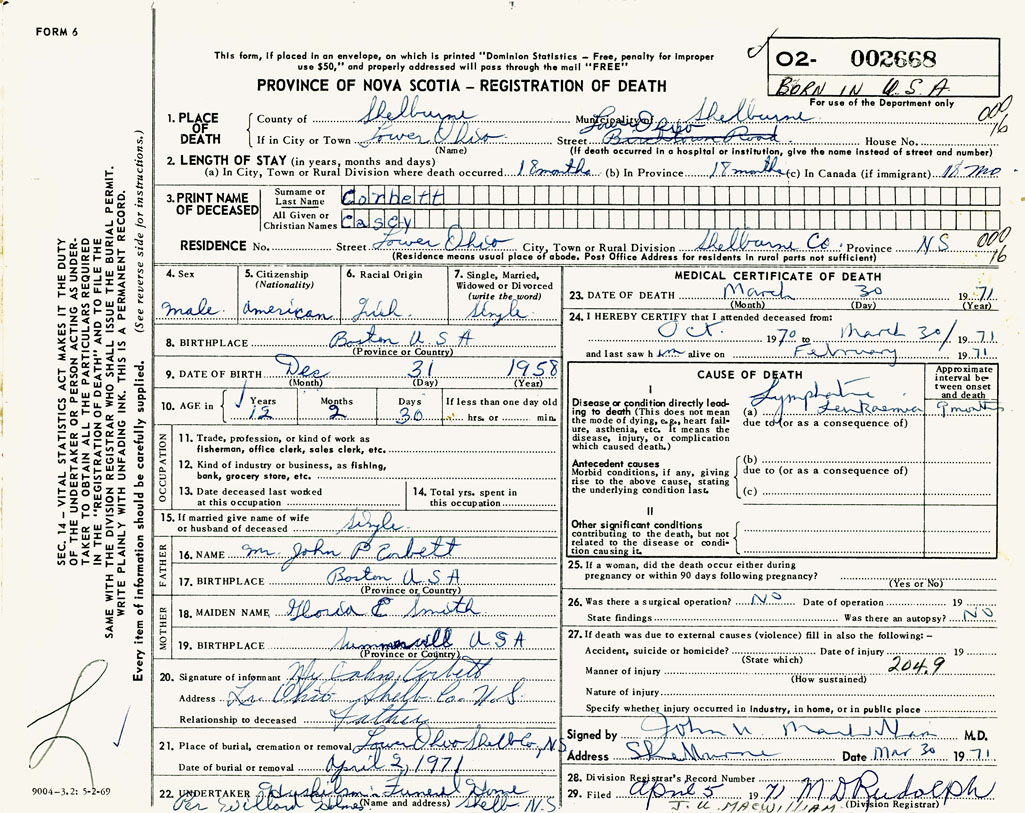 FORM 6
This form, if placed in an envelope, on which is printed "Dominion Statistics – Free, penalty for improper
use $50," and properly addressed will pass through the mail "FREE"
PROVINCE OF NOVA SCOTIA – REGISTRATION OF DEATH
02- 002668
BORN IN U.S.A
For use of the Department only
000
16
1. PLACE OF DEATH
County of Shelburne Municipality of Shelburne
If in City or Town Lower Ohio Street Lower Ohio House No.
(Name) (If death occurred in a hospital or institution, give the name instead of street and number)
2. LENGTH OF STAY (in years, months and days)
(a) In City, Town or Rural Division where death occurred 18 months (b) In Province 18 months (c) In Canada (if immigrant) 18 mo
3. PRINT NAME OF DECEASED
Surname or Last Name Corbett
All Given or Christian Names Casey
RESIDENCE No. Street Lower Ohio City, Town or Rural Division Shelburne Co. Province N S
000
16
(Residence means usual place of abode. Post Office Address for residents in rural parts not sufficient)
4. Sex
male
5. Citizenship
(Nationality)
American
6. Racial Origin
Irish
7. Single, Married,
Widowed or Divorced
(write the word)
Single
8. BIRTHPLACE Boston U S A
(Province or Country)
9. DATE OF BIRTH Dec 31 1958
(Month) (Day) (Year)
10. AGE in Years Months Days If less than one day old
12 2 30 hrs. or min.
OCCUPATION
11. Trade, profession, or kind of work as
fisherman, office clerk, sales clerk, etc.
12. Kind of industry or business, as fishing,
bank, grocery store, etc.
13. Date deceased last worked
at this occupation
14. Total yrs. spent in
this occupation
15. If married give name of wife
or husband of deceased Single
FATHER
16. NAME Mr. John P Corbett
17. BIRTHPLACE Boston U.S.A
(Province or Country)
MOTHER
18. MAIDEN NAME Gloria E Smith
19. BIRTHPLACE Summerville U S A
(Province or Country)
20. Signature of informant John Corbett
Address Lr. Ohio Shelb. Co. N.S.
Relationship to deceased Father
21. Place of burial, cremation or removal Lower Ohio Shelb Co, N.S
Date of burial or removal April 2, 1971
22. UNDERTAKER Huskilson's Funeral Home
Per Willard (Name and address) Shelb N.S.
MEDICAL CERTIFICATE OF DEATH
23. DATE OF DEATH March 30 1971
(Month) (Day) (Year)
24. I HEREBY CERTIFY that I attended deceased from:
Oct. 1970 to March 30/ 1971
and last saw him alive on February 1971
CAUSE OF DEATH
Approximate
interval be-
tween onset
and death
I
Disease or condition directly lead-
ing to death (This does not mean
the mode of dying, e.g., heart fail-
ure, asthenia, etc. It means the
disease, injury, or complication
which caused death.)
(a) Lymphatic Leukaemia 9 months
due to (or as a consequence of)
Antecedent causes
Morbid conditions, if any, giving
rise to the above cause, stating
the underlying condition last.
(b)
due to (or as a consequence of)
(c)
II
Other significant conditions
contributing to the death, but not
related to the disease or condi-
tion causing it.
25. If a woman, did the death occur either during
pregnancy or within 90 days following pregnancy?
(Yes or No)
26. Was there a surgical operation? NO Date of operation 19
State findings Was there an autopsy? NO
27. If death was due to external causes (violence) fill in also the following: –
Accident, suicide or homicide? Date of injury 19
(State which)
204.9
Manner of injury
(How sustained)
Nature of injury
Specify whether injury occurred in industry, in home, or in public place
Signed by John U. MacWilliam M.D.
Address Shelburne Date Mar 30 1971
28. Division Registrar's Record Number
29. Filed April 5 1971 M D Rudolph
J. U. MACWILLIAM (Division Registrar)
SEC. 14 – VITAL STATISTICS ACT MAKES IT THE DUTY
OF THE UNDERTAKER OR PERSON ACTING AS UNDER-
TAKER TO OBTAIN ALL THE PARTICULARS REQUIRED
IN THE "REGISTRATION OF DEATH" AND TO FILE THE
SAME WITH THE DIVISION REGISTRAR WHO SHALL ISSUE THE BURIAL PERMIT.
WRITE PLAINLY WITH UNFADING INK. THIS IS A PERMANENT RECORD.
Every item of information should be carefully supplied. (See reverse side for instructions.)
9004-3.2: 5-2-69